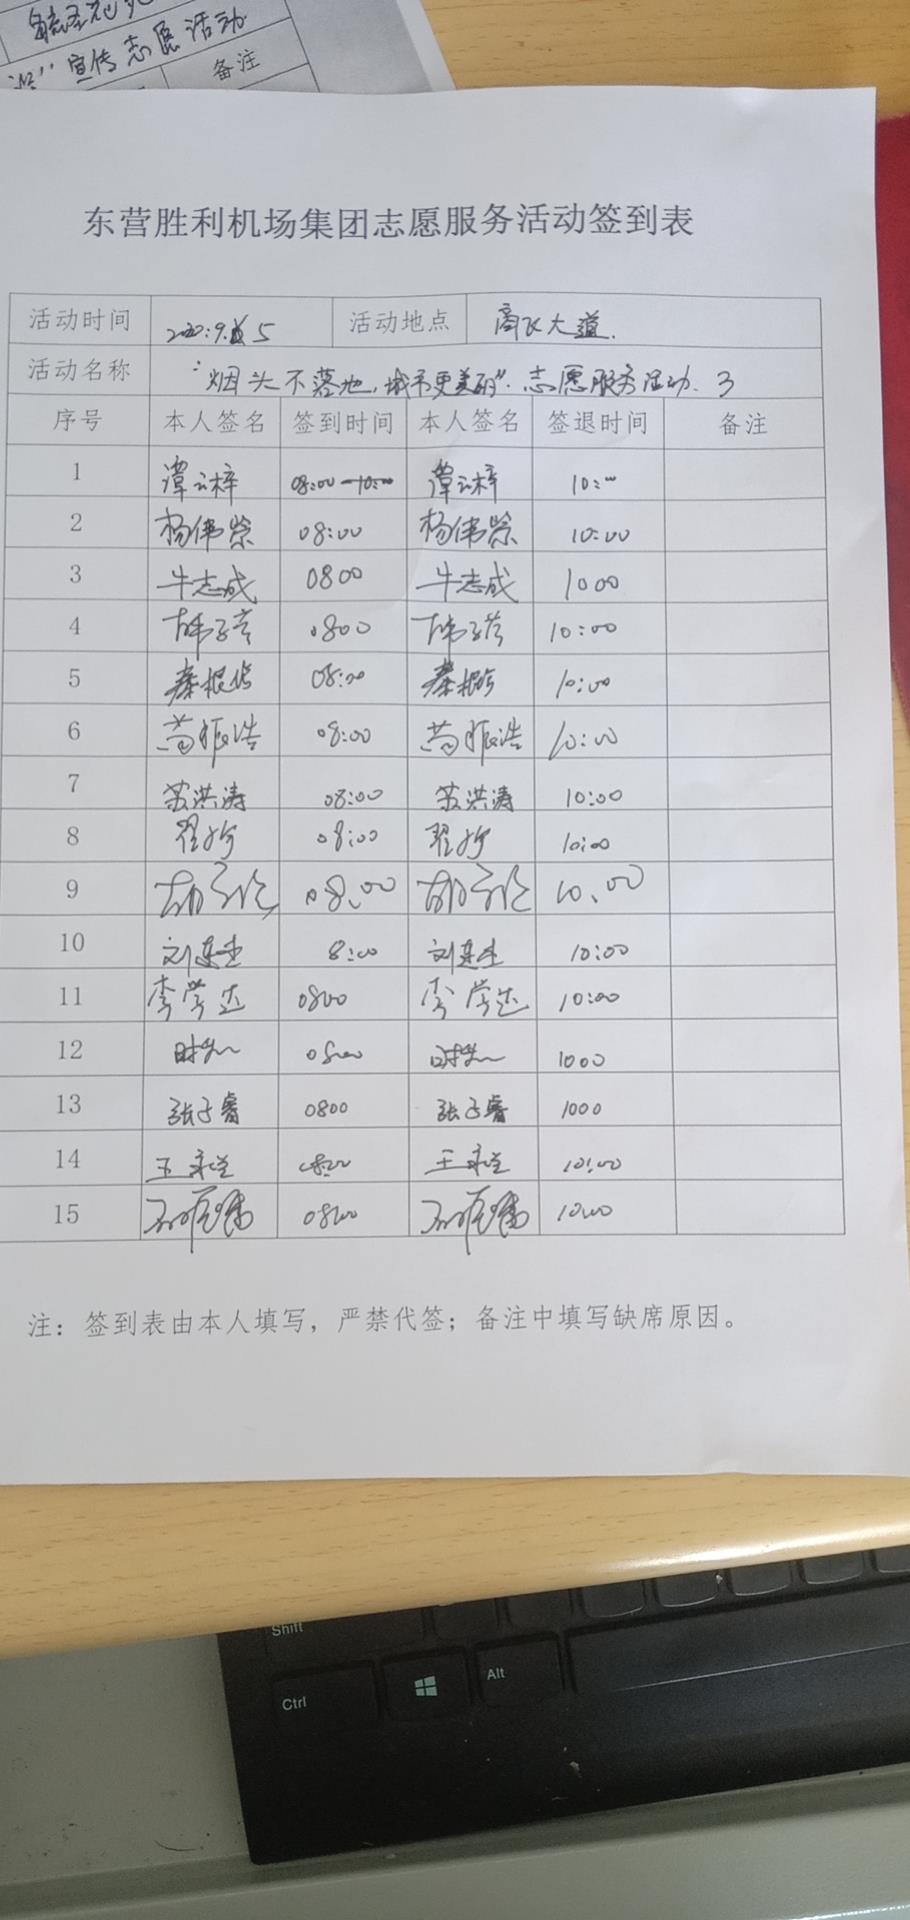 宣传志愿活动
备注
东营胜利机场集团志愿服务活动签到表
活动时间 2020.9.5 活动地点 商飞大道.
活动名称 "烟头不落地,城市更美丽".志愿服务活动.3
序号 本人签名 签到时间 本人签名 签退时间 备注
1 谭云梓 08:00-10:00 谭云梓 10:00
2 杨伟荣 08:00 杨伟荣 10:00
3 牛志成 0800 牛志成 1000
4 0800 10:00
5 秦根 08:00 秦根 10:00
6 振浩 08:00 振浩 10:00
7 苏洪涛 08:00 苏洪涛 10:00
8 翟 08:00 翟 10:00
9 08.00 10.00
10 刘连生 8:00 刘连生 10:00
11 李学 0800 李学 10:00
12 0800 1000
13 张子睿 0800 张子睿 1000
14 王 08:00 王 10:00
15 0800 1000
注：签到表由本人填写，严禁代签；备注中填写缺席原因。
Shift
Ctrl Alt